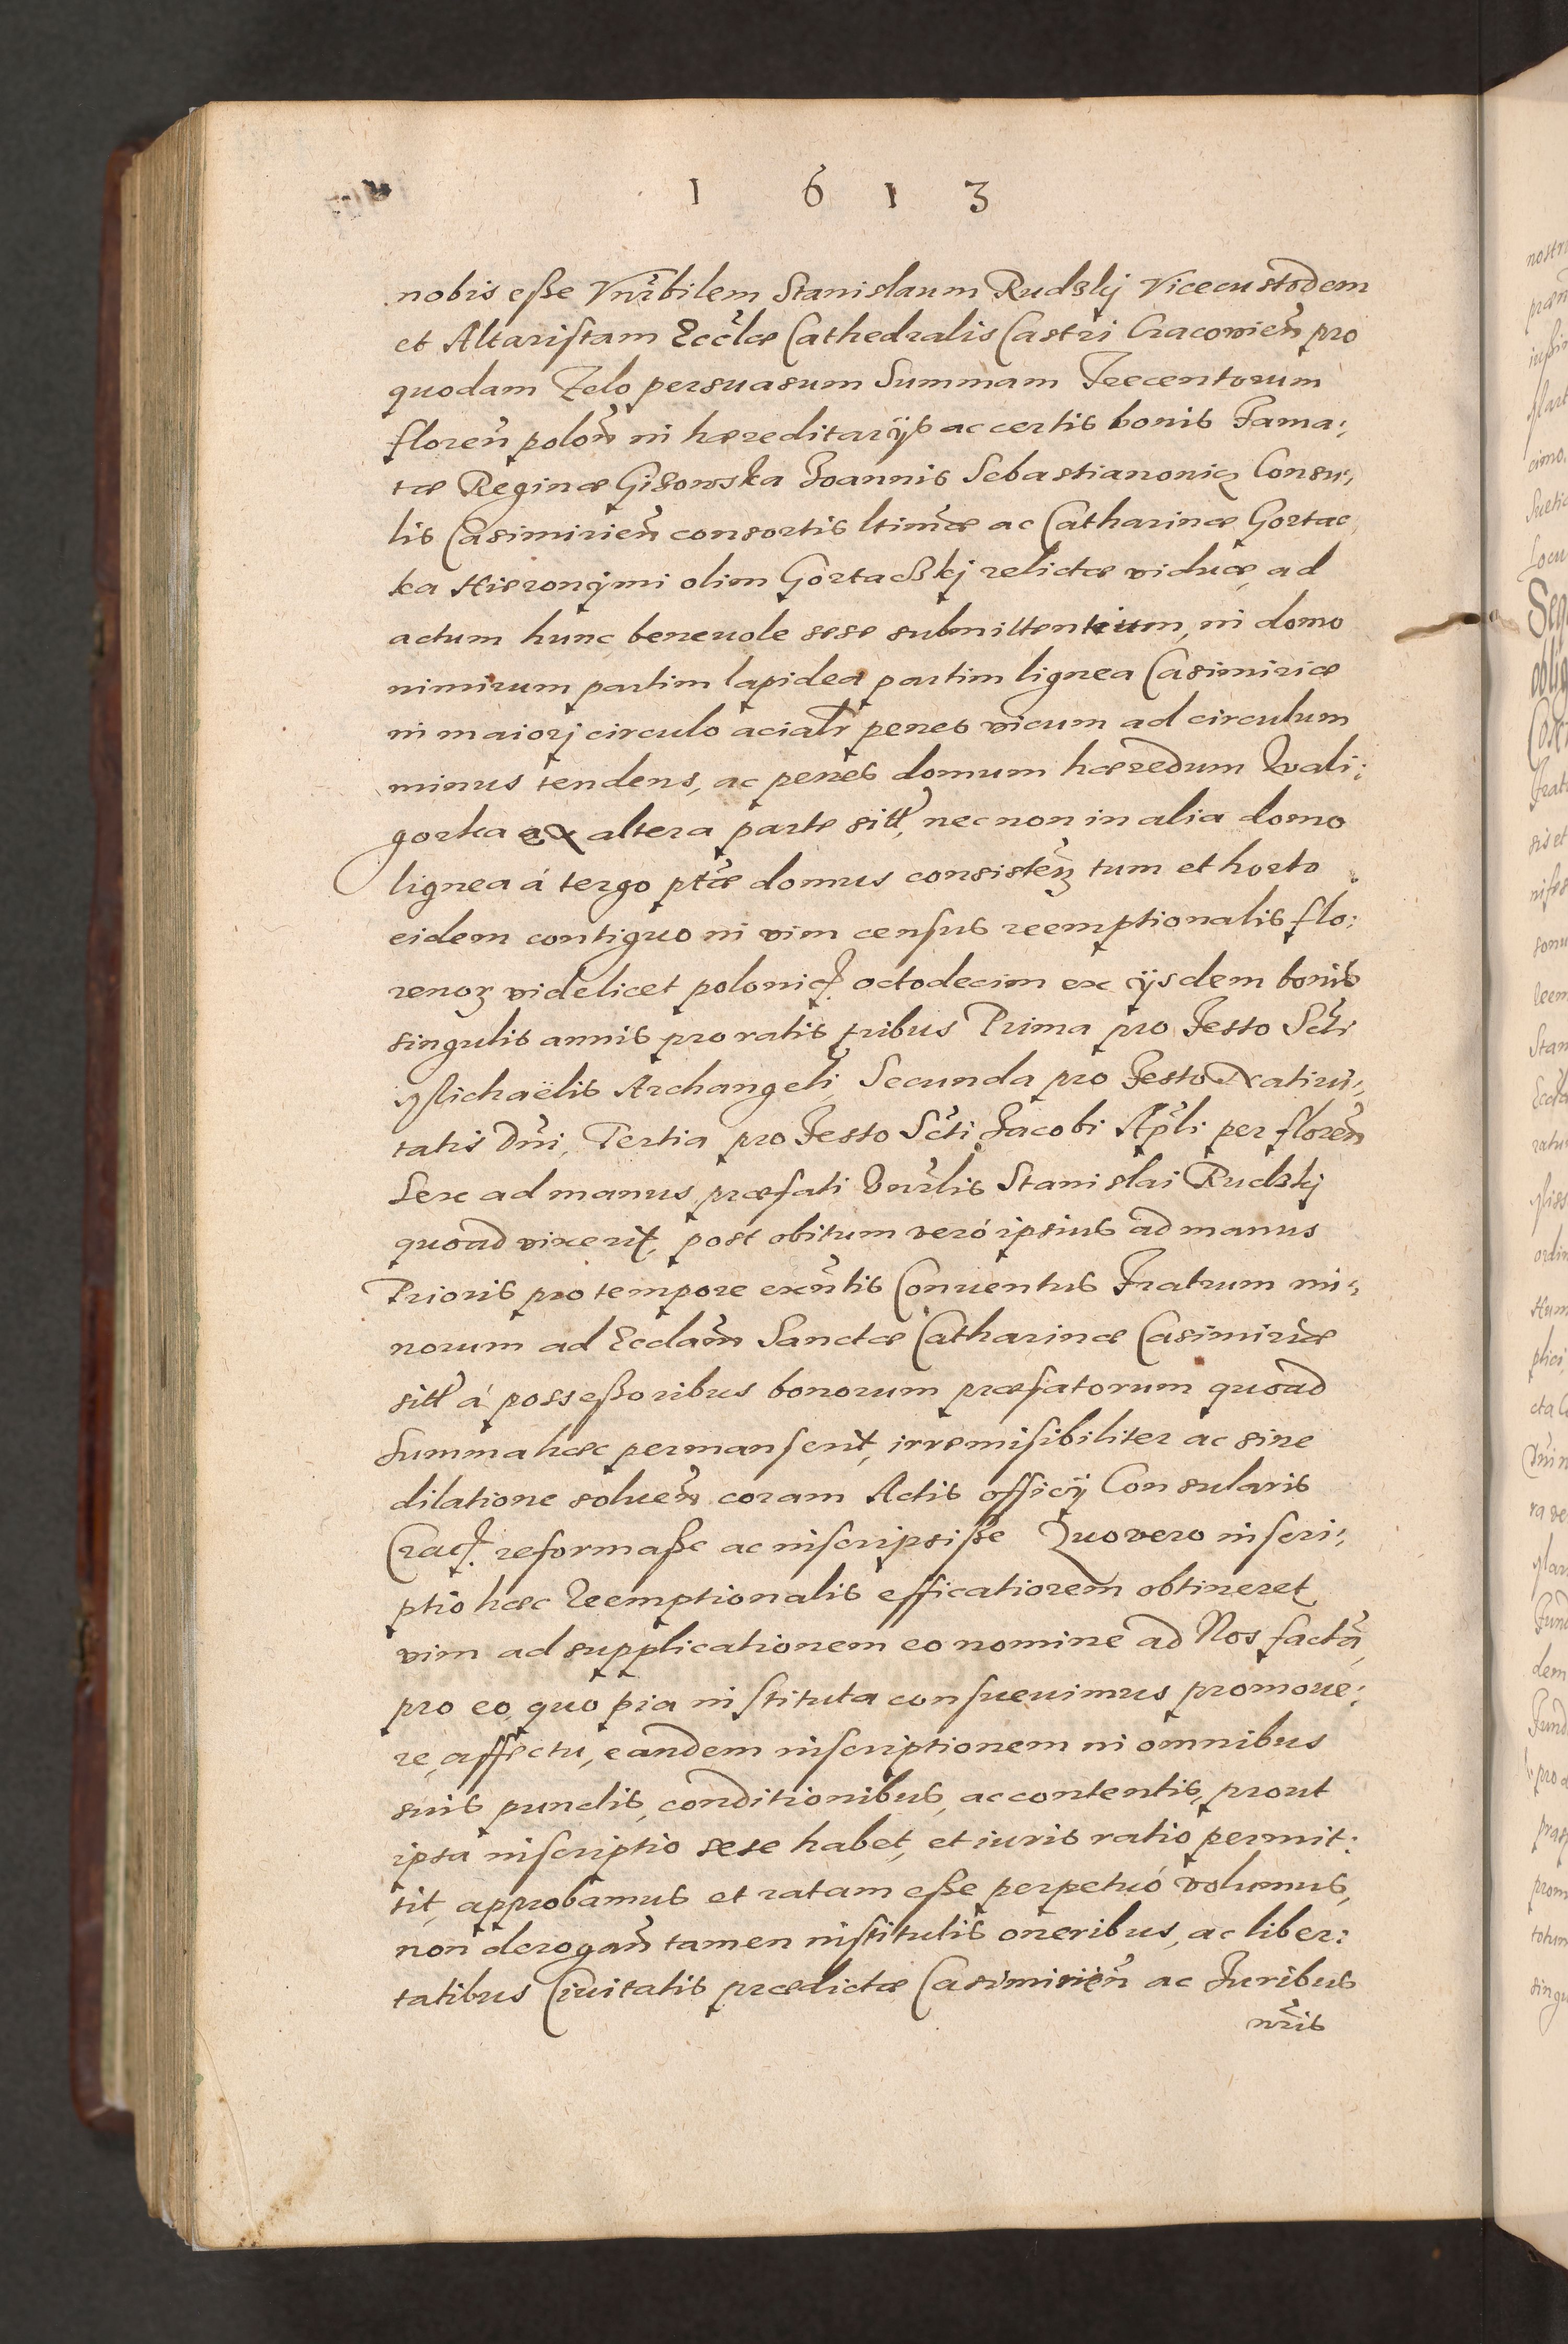 1 6 1 3
nobis eße Vnrbilem Stanislaum Rudzkj Vicecustodem
et Altaristam Eccłæ Cathedralis Castri Cracovien̄ pro
quodam Zelo persuasum Summam Trecentorum
floren̄ polon̄ in hæreditarijs ac certis bonis Fama:
tæ Reginæ Gisowska Joannis Sebastianonicz Consu:
lis Casimirien̄ consortis ltimæ ac Catharinæ Gortac
ka Hieronymi olim Gortaczkj relictæ viduæ, ad
actum hunc beneuole sese submittentium, in domo
nimirum partim lapidea partim lignea Casimiriæ
in maiorj circulo acialr penes vicum ad circulum
minus tendens, ac penes domum hæredum Quali:
gorka ex altera parte sitt, nec non in alia domo
lignea á tergo ptæ domus consisten̄ tum et horto
eidem contiguo in vim census reemptionalis flo:
renoꝝ videlicet polonicꝫ octodecim ex ijsdem bonis
singulis annis pro ratis tribus Prima pro Festo Scti
Michaëlis Archangeli, Secunda pro Festo Natiui:
tatis Dni, Tertia pro Festo Scti Jacobi Apli per floren̄
Sex ad manus præfati Vnrlis Stanislai Rudzkj
quoad vixerit, post obitum veró ipsius ad manus
Prioris pro tempore exn̄tis Conuentus Fratrum mi:
norum ad Ecclam̄ Sanctæ Catharinæ Casimiriæ
sitt á posseßoribus bonorum præfatorum quoad
Summa hæc permanserit, irremisibiliter ac sine
dilatione soluen̄ coram Actis officij Consularis
Cracꝫ reformaße ac inscripsiße Quo vero inscri:
ptio hæc Reemptionalis efficatiorem obtineret
vim ad supplicationem eo nomine ad Nos factā,
pro eo, quo pia instituta consueuimus promoue:
re, affectu, eandem inscriptionem in omnibus
suis punctis, conditionibus, ac contentis, prout
ipsa inscriptio sese habet, et iuris ratio permit:
tit, approbamus et ratam eße perpetuó volumus,
non derogan̄ tamen institutis oneribus, ac liber:
tatibus Ciuitatis prædictæ Casimirien̄ ac Juribus
nris